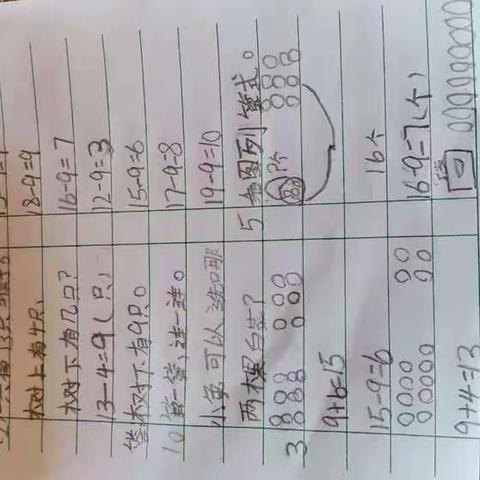 树上有4只,
树下有几只?
13-4=9(只)
答:树下有9只。
10算一算,连一连。
小兔可以选哪
两木黑台
3
9+6=15
15-9=6
9+4=13
18-9=9
16-9=7
12-9=3
15-9=6
17-9=8
19-9=10
5看图列算式。
?个
16个
16-9=7(个)